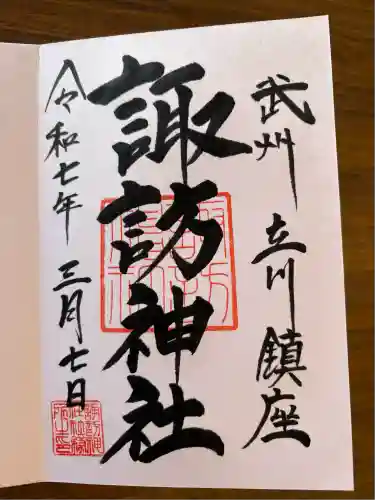 武州 立川鎮座
諏訪神社
令和七年 三月七日